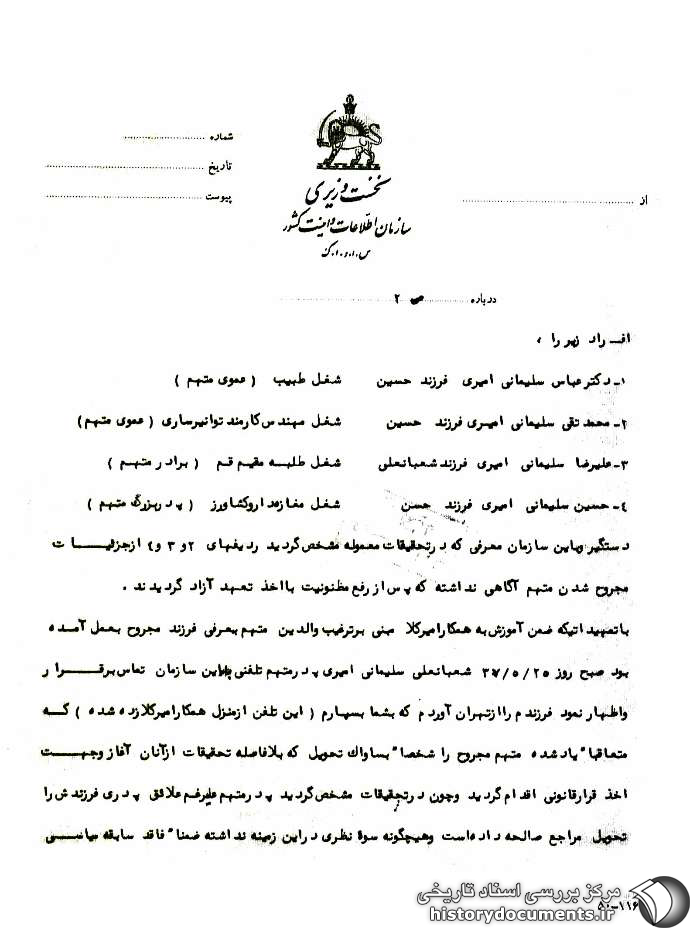 شماره
تاریخ
پیوست
نخست وزیری
سازمان اطلاعات و امنیت کشور
س.ا.و.ا.ک
از
درباره ص ۲
افراد زیر را ،
۱ـ دکتر عباس سلیمانی امیری فرزند حسین شغل طبیب ( عموی متهم )
۲ـ محمد تقی سلیمانی امیری فرزند حسین شغل مهندس کارمند توانیر ساری ( عموی متهم )
۳ـ علیرضا سلیمانی امیری فرزند شعبانعلی شغل طلبه مقیم قم ( برادر متهم )
۴ـ حسین سلیمانی امیری فرزند حسن شغل مغازه دار و کشاورز ( پدربزرگ متهم )
دستگیر و باین سازمان معرفی که در تحقیقات معموله مشخص گردید ردیفهای ۲ و ۳ و ۴ از جزئیات
مجروح شدن متهم آگاهی نداشته که پس از رفع مظنونیت با اخذ تعهد آزاد گردیدند .
با تمهیداتیکه ضمن آموزش به همکار امیرکلا مبنی بر ترغیب والدین متهم بمعرفی فرزند مجروح بعمل آمده
بود صبح روز ۳۷/۵/۲۵ شعبانعلی سلیمانی امیری پدر متهم تلفنی باین سازمان تماس برقرار
و اظهار نمود فرزندم را از تهران آوردم که بشما بسپارم ( این تلفن از منزل همکار امیرکلا زده شده ) که
متعاقبا" یاد شده متهم مجروح را شخصا" بساواک تحویل که بلافاصله تحقیقات از آنان آغاز و جهت
اخذ قرار قانونی اقدام گردید و چون در تحقیقات مشخص گردید پدر متهم علیرغم علائق پدری فرزندش را
تحویل مراجع صالحه داده است و هیچگونه سوء نظری در این زمینه نداشته ضمنا" فاقد سابقه سیاسی
۵۰-۱۱۶
مرکز بررسی اسناد تاریخی
historydocuments.ir